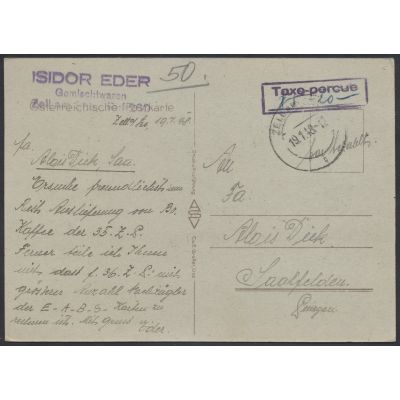 ISIDOR EDER
Gemischtwaren
50.
Österreichische Postkarte
Zell a/See, 19.7.48.
Taxe-percue
19.7.48-12
bar bezahlt.
Fa.
Alois Dick Saa.
Ersuche freundlichst um
Rest Auslieferung von Br.
Kaffee der 35. Z. P.
Ferner teile ich Ihnen
mit, dass f. 36. Z. P. mit
grösserer Anzahl Nachzügler
der E-A-B-S- Karten zu
rechnen ist. Mit Gruss
Eder.
An
Fa.
Alois Dick
Saalfelden.
Pinzgau.